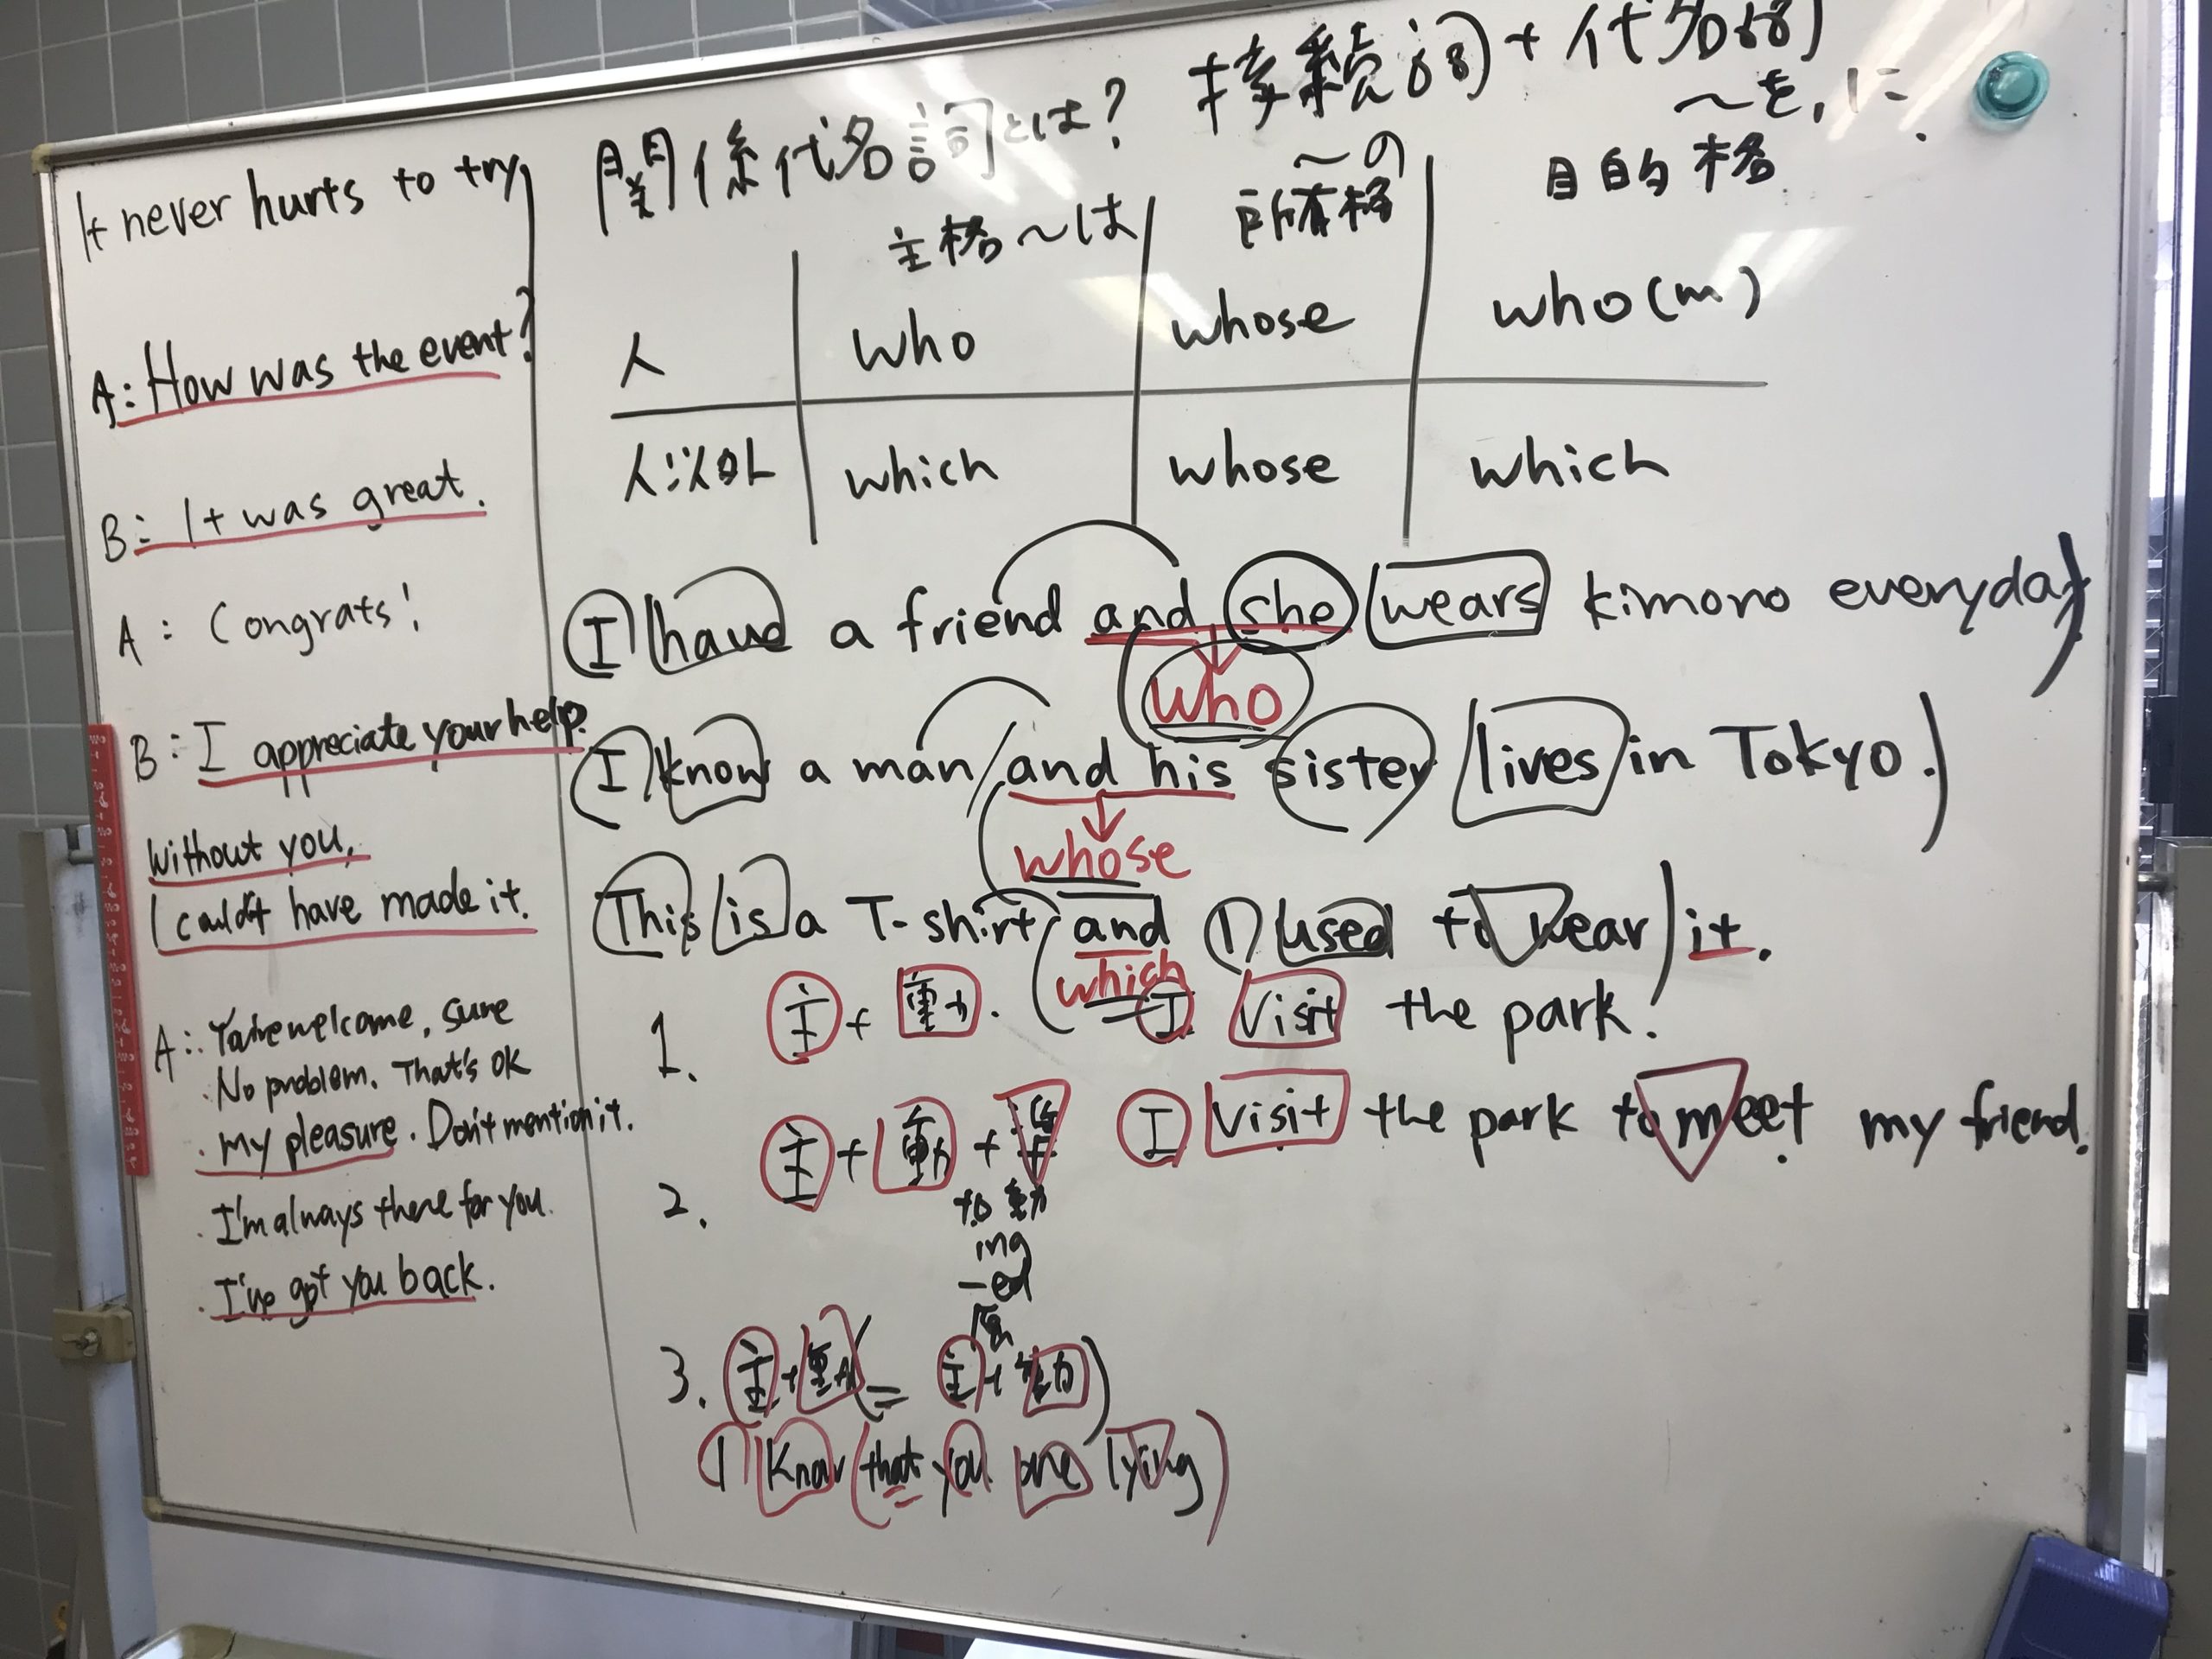 It never hurts to try
A: How was the event?
B: It was great.
A: Congrats!
B: I appreciate your help.
Without you,
I couldn't have made it.
A: You're welcome, sure
· No problem. That's ok
· my pleasure. Don't mention it.
· I'm always there for you.
· I've got you back.
関係代名詞とは? 接続詞+代名詞
主格~は
~の
所有格
~を,に
目的格
人 who whose who(m)
人以外 which whose which
I have a friend and she wears kimono everyday
who
I know a man and his sister lives in Tokyo.
whose
This is a T-shirt and I used to wear it.
which
1. 主+動. I visit the park.
2. 主+動+準 I visit the park to meet my friend.
to 動
ing
-ed
3. 主+動 ( 主+動)
I know (that you are lying)